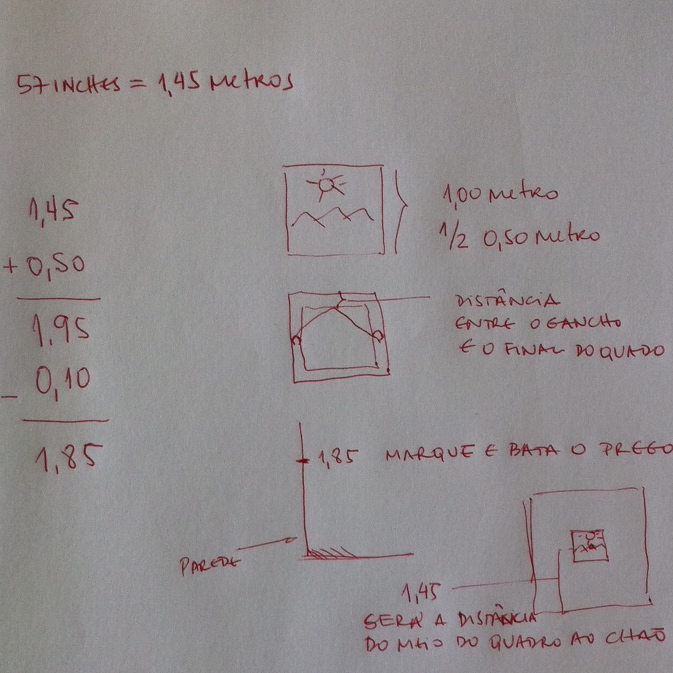 57 INCHES = 1,45 METROS
1,45
+ 0,50
1,95
- 0,10
1,85
1,00 METRO
1/2 0,50 METRO
DISTÂNCIA
ENTRE O GANCHO
E O FINAL DO QUADO
1,85 MARQUE E BATA O PREGO
PAREDE
1,45
SERÁ A DISTÂNCIA
DO MEIO DO QUADRO AO CHÃO